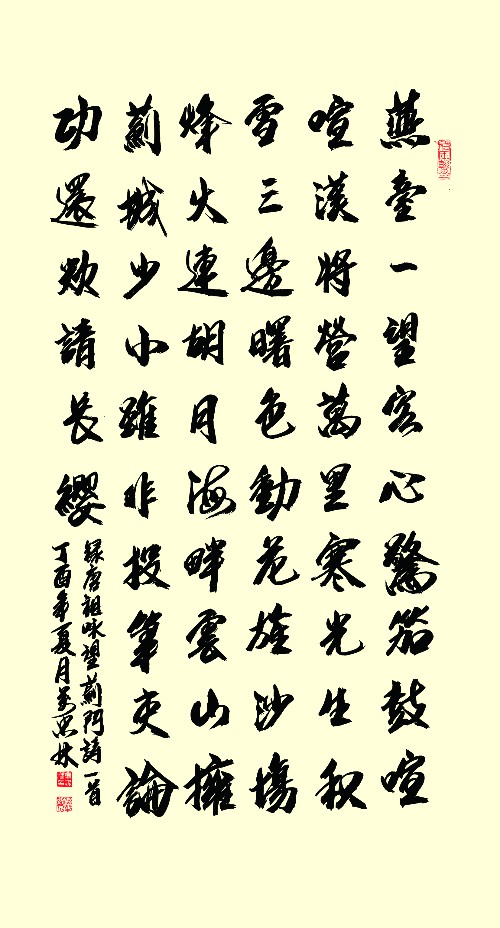 燕臺一望客心驚笳鼓喧
喧漢將營萬里寒光生积
雪三邊曙色動危旌沙場
烽火連胡月海畔雲山擁
薊城少小雖非投筆吏論
功還欲請长纓
録唐祖咏望薊门詩一首
丁酉年夏月